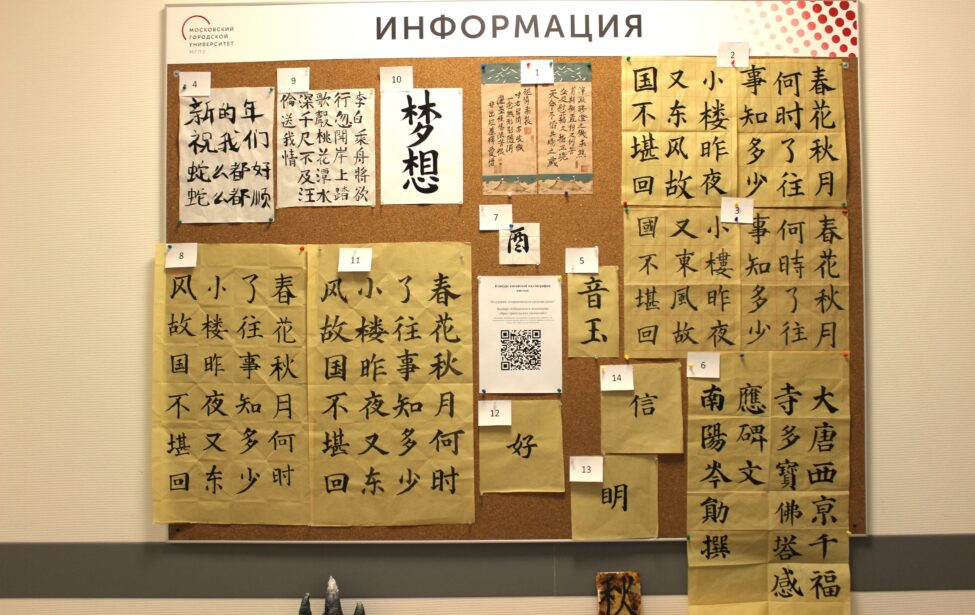 МОСКОВСКИЙ
ГОРОДСКОЙ
УНИВЕРСИТЕТ
МГПУ
ИНФОРМАЦИЯ
4
新的年
祝我们
蛇么都好
蛇么都顺
9
李白乘舟將欲
行忽開岸上踏
歌聲桃花潭水
深千尺不及汪
倫送我情
10
梦想
1
2
春花秋月
何时了往
事知多少
小楼昨夜
又东风故
国不堪回
3
春花秋月
何時了往
事知多少
小樓昨夜
又東風故
國不堪回
7
酉
5
音玉
8
春花秋月何时
了往事知多少
小楼昨夜又东
风故国不堪回
11
春花秋月何时
了往事知多少
小楼昨夜又东
风故国不堪回
Конкурс китайской каллиграфии
12
好
14
信
13
明
6
大唐西京千福
寺多寶佛塔感
應碑文
南陽岑勛撰
秋